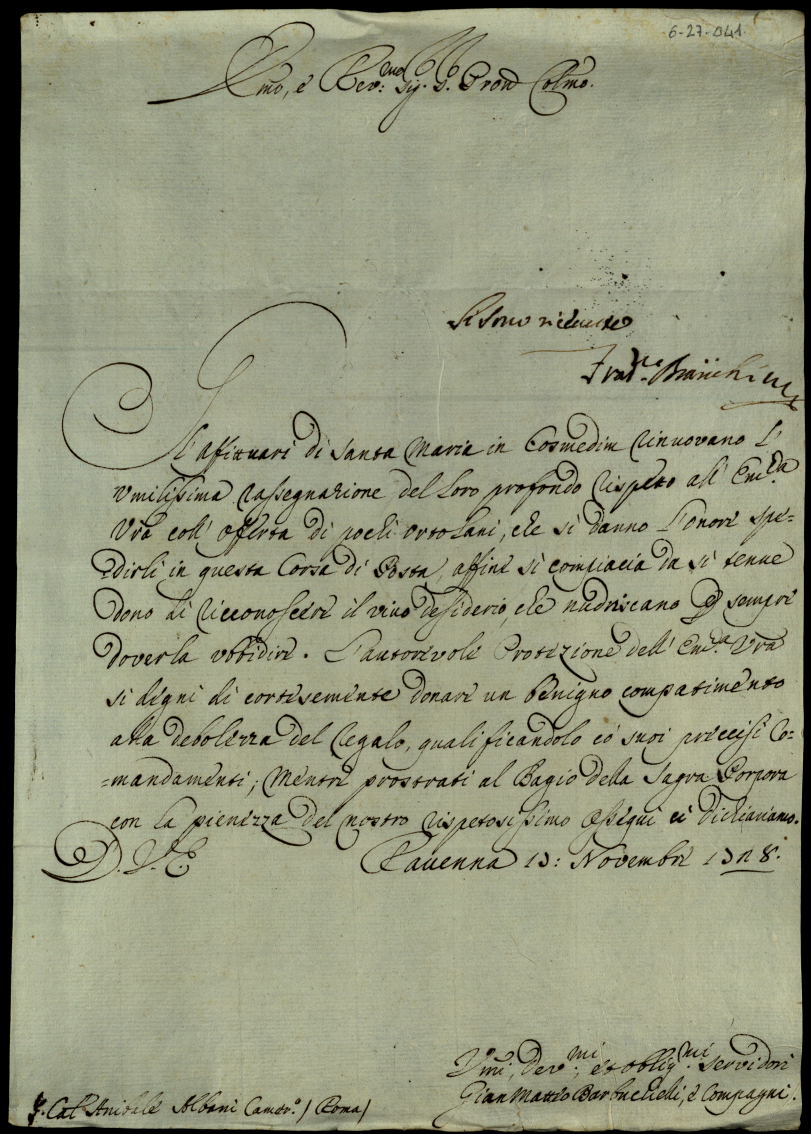 6-27-041
Emo, e Rev.mo Sig. S. Pron Colmo.
Si sono ricevute
Fran.co Bianchini
Gl'affittuari di Santa Maria in Cosmedin rinuovano l'
umilissima rassegnazione del loro profondo rispeto all' Em.za
Vra coll' offerta di pochi ortolani, che si danno l'onore spe=
=dirli in questa Corsa di Posta, affine si compiacia da si tenue
dono di riconoscere il vivo desiderio, che nudriscano di sempre
doverla ubbidire. L'autorevole Protezione dell' Em.za Vra
si digni di cortesemente donare un Benigno compatimento
alla debolezza del regalo, qualificandolo có suoi preccisi Co=
=mandamenti; Mentre prostrati al Bagio della Sagra Porpora
con la pienezza del nostro rispetosissimo ossequi ci dichiariamo.
D. V. E. Ravenna 13: Novembre
Umi, Dev.mi, et obblig.mi Servidori
Gian Matteo Barbuchielli, e Compagni.
S. Cal Anibale Albani Cam.o / Roma /